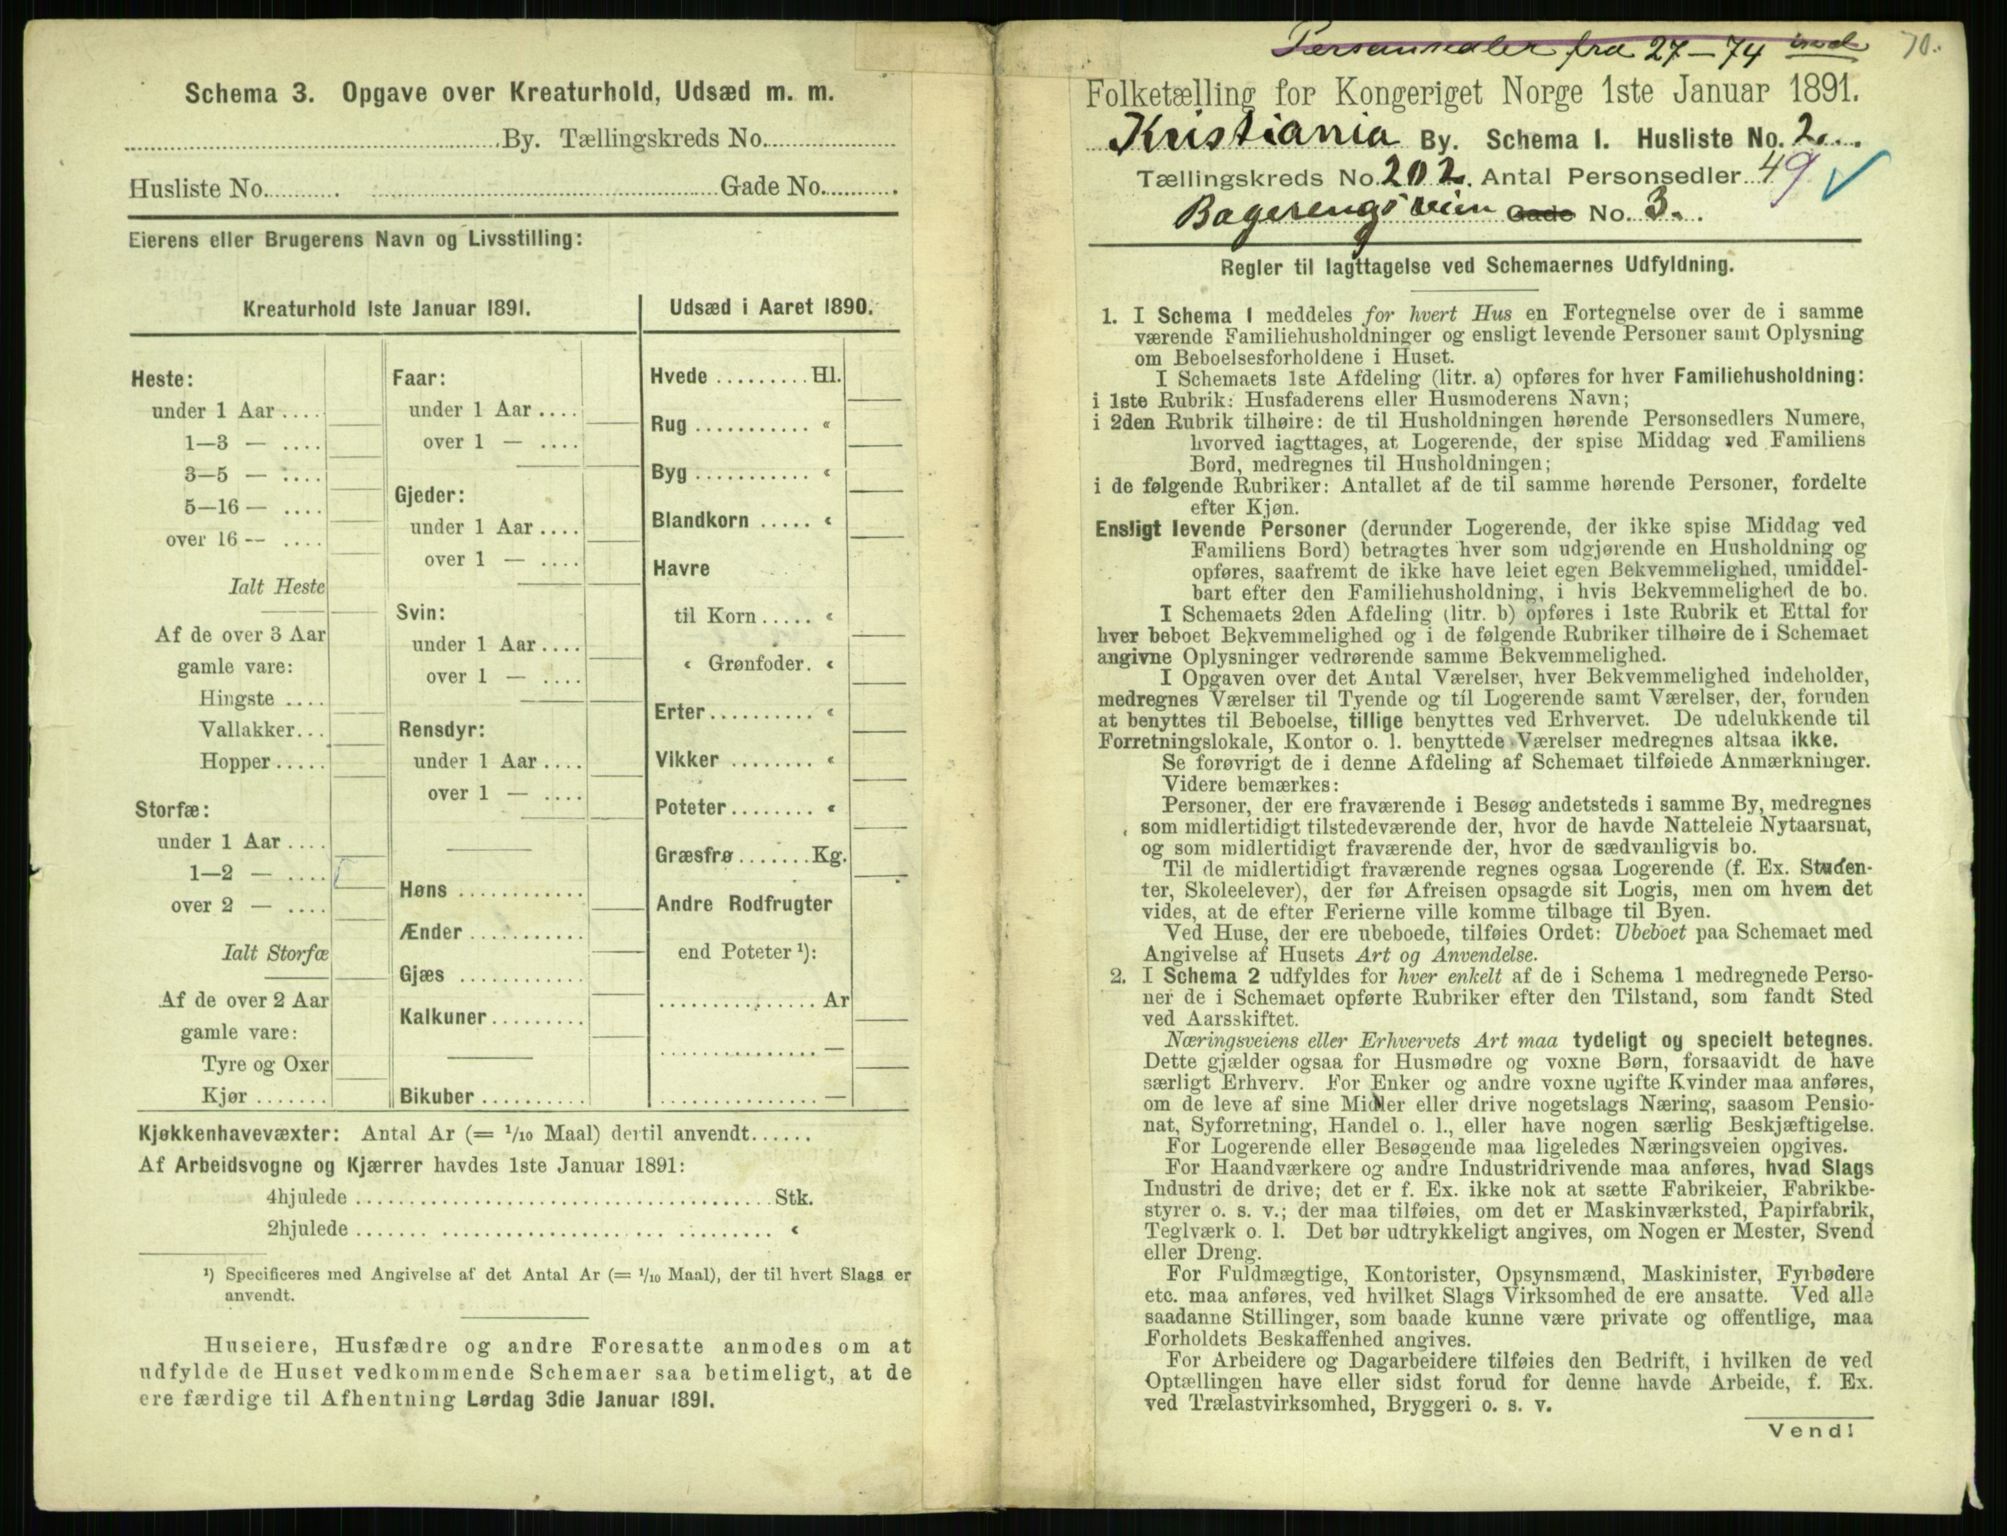 Schema 3. Opgave over Kreaturhold, Udsæd m. m.
By. Tællingskreds No.
Husliste No. Gade No.
Eierens eller Brugerens Navn og Livsstilling:
Kreaturhold 1ste Januar 1891.
Heste:
under 1 Aar ....
1—3 — ....
3—5 — ....
5—16 — ....
over 16 — ....
Ialt Heste
Af de over 3 Aar
gamle vare:
Hingste ....
Vallakker...
Hopper .....
Storfæ:
under 1 Aar ....
1—2 — ....
over 2 — ....
Ialt Storfæ
Af de over 2 Aar
gamle vare:
Tyre og Oxer
Kjør .......
Faar:
under 1 Aar ....
over 1 — ....
Gjeder:
under 1 Aar ....
over 1 — ....
Svin:
under 1 Aar ....
over 1 — ....
Rensdyr:
under 1 Aar ....
over 1 — ....
Høns ............
Ænder ...........
Gjæs ............
Kalkuner.........
Bikuber ..........
Udsæd i Aaret 1890.
Hvede ......... Hl.
Rug ........... «
Byg ........... «
Blandkorn ..... «
Havre
til Korn ..... «
« Grønfoder. «
Erter .......... «
Vikker ........ «
Poteter ........ «
Græsfrø ....... Kg.
Andre Rodfrugter
end Poteter ¹):
............... Ar
............... —
............... —
Kjøkkenhavevæxter: Antal Ar (= 1/10 Maal) dertil anvendt......
Af Arbeidsvogne og Kjærrer havdes 1ste Januar 1891:
4hjulede ........................................ Stk.
2hjulede ........................................ «
¹) Specificeres med Angivelse af det Antal Ar (= 1/10 Maal), der til hvert Slags er
anvendt.
Huseiere, Husfædre og andre Foresatte anmodes om at
udfylde de Huset vedkommende Schemaer saa betimeligt, at de
ere færdige til Afhentning Lørdag 3die Januar 1891.
Personsedler fra 27—74 incl 70.
Folketælling for Kongeriget Norge 1ste Januar 1891.
Kristiania By. Schema 1. Husliste No. 2.
Tællingskreds No. 202. Antal Personsedler 49 ✓
Bagerengsveien Gade No. 3.
Regler til Iagttagelse ved Schemaernes Udfyldning.
1. I Schema 1 meddeles for hvert Hus en Fortegnelse over de i samme
værende Familiehusholdninger og ensligt levende Personer samt Oplysning
om Beboelsesforholdene i Huset.
I Schemaets 1ste Afdeling (litr. a) opføres for hver Familiehusholdning:
i 1ste Rubrik: Husfaderens eller Husmoderens Navn;
i 2den Rubrik tilhøire: de til Husholdningen hørende Personsedlers Numere,
hvorved iagttages, at Logerende, der spise Middag ved Familiens
Bord, medregnes til Husholdningen;
i de følgende Rubriker: Antallet af de til samme hørende Personer, fordelte
efter Kjøn.
Ensligt levende Personer (derunder Logerende, der ikke spise Middag ved
Familiens Bord) betragtes hver som udgjørende en Husholdning og
opføres, saafremt de ikke have leiet egen Bekvemmelighed, umiddel-
bart efter den Familiehusholdning, i hvis Bekvemmelighed de bo.
I Schemaets 2den Afdeling (litr. b) opføres i 1ste Rubrik et Ettal for
hver beboet Bekvemmelighed og i de følgende Rubriker tilhøire de i Schemaet
angivne Oplysninger vedrørende samme Bekvemmelighed.
I Opgaven over det Antal Værelser, hver Bekvemmelighed indeholder,
medregnes Værelser til Tyende og til Logerende samt Værelser, der, foruden
at benyttes til Beboelse, tillige benyttes ved Erhvervet. De udelukkende til
Forretningslokale, Kontor o. l. benyttede Værelser medregnes altsaa ikke.
Se forøvrigt de i denne Afdeling af Schemaet tilføiede Anmærkninger.
Videre bemærkes:
Personer, der ere fraværende i Besøg andetsteds i samme By, medregnes
som midlertidigt tilstedeværende der, hvor de havde Natteleie Nytaarsnat,
og som midlertidigt fraværende der, hvor de sædvanligvis bo.
Til de midlertidigt fraværende regnes ogsaa Logerende (f. Ex. Studen-
ter, Skoleelever), der før Afreisen opsagde sit Logis, men om hvem det
vides, at de efter Ferierne ville komme tilbage til Byen.
Ved Huse, der ere ubeboede, tilføies Ordet: Ubeboet paa Schemaet med
Angivelse af Husets Art og Anvendelse.
2. I Schema 2 udfyldes for hver enkelt af de i Schema 1 medregnede Perso-
ner de i Schemaet opførte Rubriker efter den Tilstand, som fandt Sted
ved Aarsskiftet.
Næringsveiens eller Erhvervets Art maa tydeligt og specielt betegnes.
Dette gjælder ogsaa for Husmødre og voxne Børn, forsaavidt de have
særligt Erhverv. For Enker og andre voxne ugifte Kvinder maa anføres,
om de leve af sine Midler eller drive nogetslags Næring, saasom Pensio-
nat, Syforretning, Handel o. l., eller have nogen særlig Beskjæftigelse.
For Logerende eller Besøgende maa ligeledes Næringsveien opgives.
For Haandværkere og andre Industridrivende maa anføres, hvad Slags
Industri de drive; det er f. Ex. ikke nok at sætte Fabrikeier, Fabrikbe-
styrer o. s. v.; der maa tilføies, om det er Maskinværksted, Papirfabrik,
Teglværk o. l. Det bør udtrykkeligt angives, om Nogen er Mester, Svend
eller Dreng.
For Fuldmægtige, Kontorister, Opsynsmænd, Maskinister, Fyrbødere
etc. maa anføres, ved hvilket Slags Virksomhed de ere ansatte. Ved alle
saadanne Stillinger, som baade kunne være private og offentlige, maa
Forholdets Beskaffenhed angives.
For Arbeidere og Dagarbeidere tilføies den Bedrift, i hvilken de ved
Optællingen have eller sidst forud for denne havde Arbeide, f. Ex.
ved Trælastvirksomhed, Bryggeri o. s. v.
Vend!